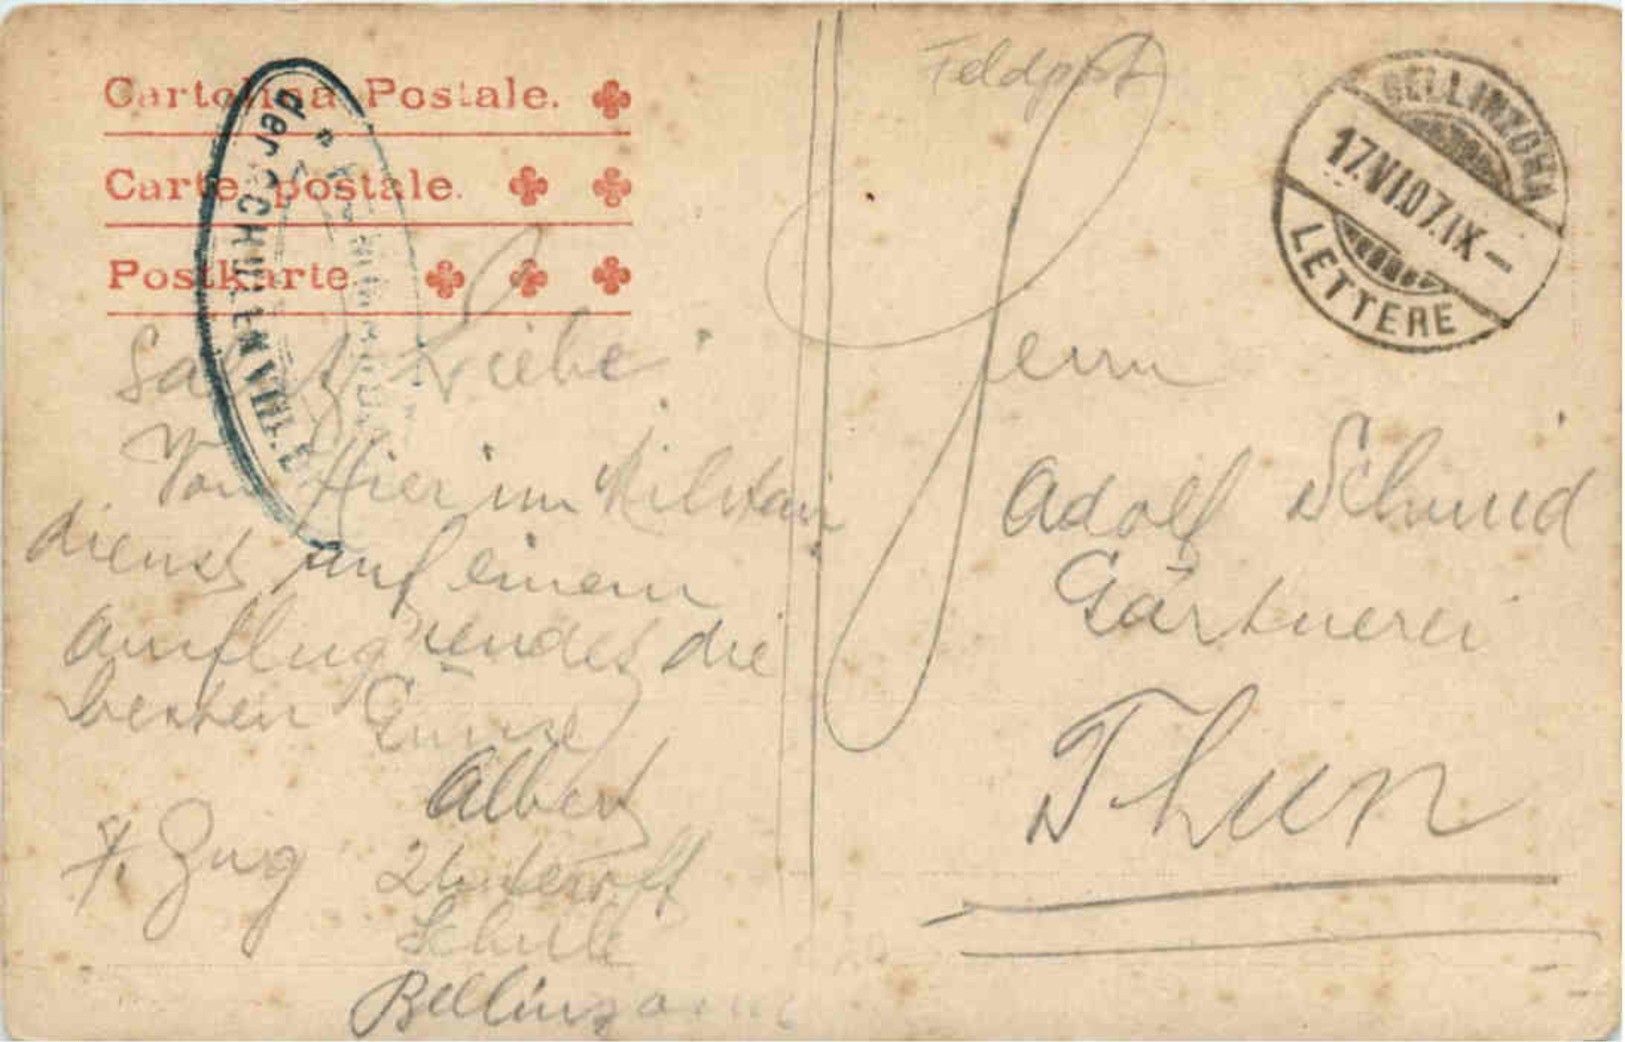 Cartolina Postale.
Carte postale.
Postkarte
der SCHULEN VIII.
Liebe
Von Hier im Militär
dienst auf einem
Ausflug sendet die
besten Grüsse
Albert
7. Zug Unteroff
Schule
Bellinzona
Feldpost
BELLINZONA
17.VI.07.IX–
LETTERE
Herrn
Adolf Schmid
Gärtnerei
Thun